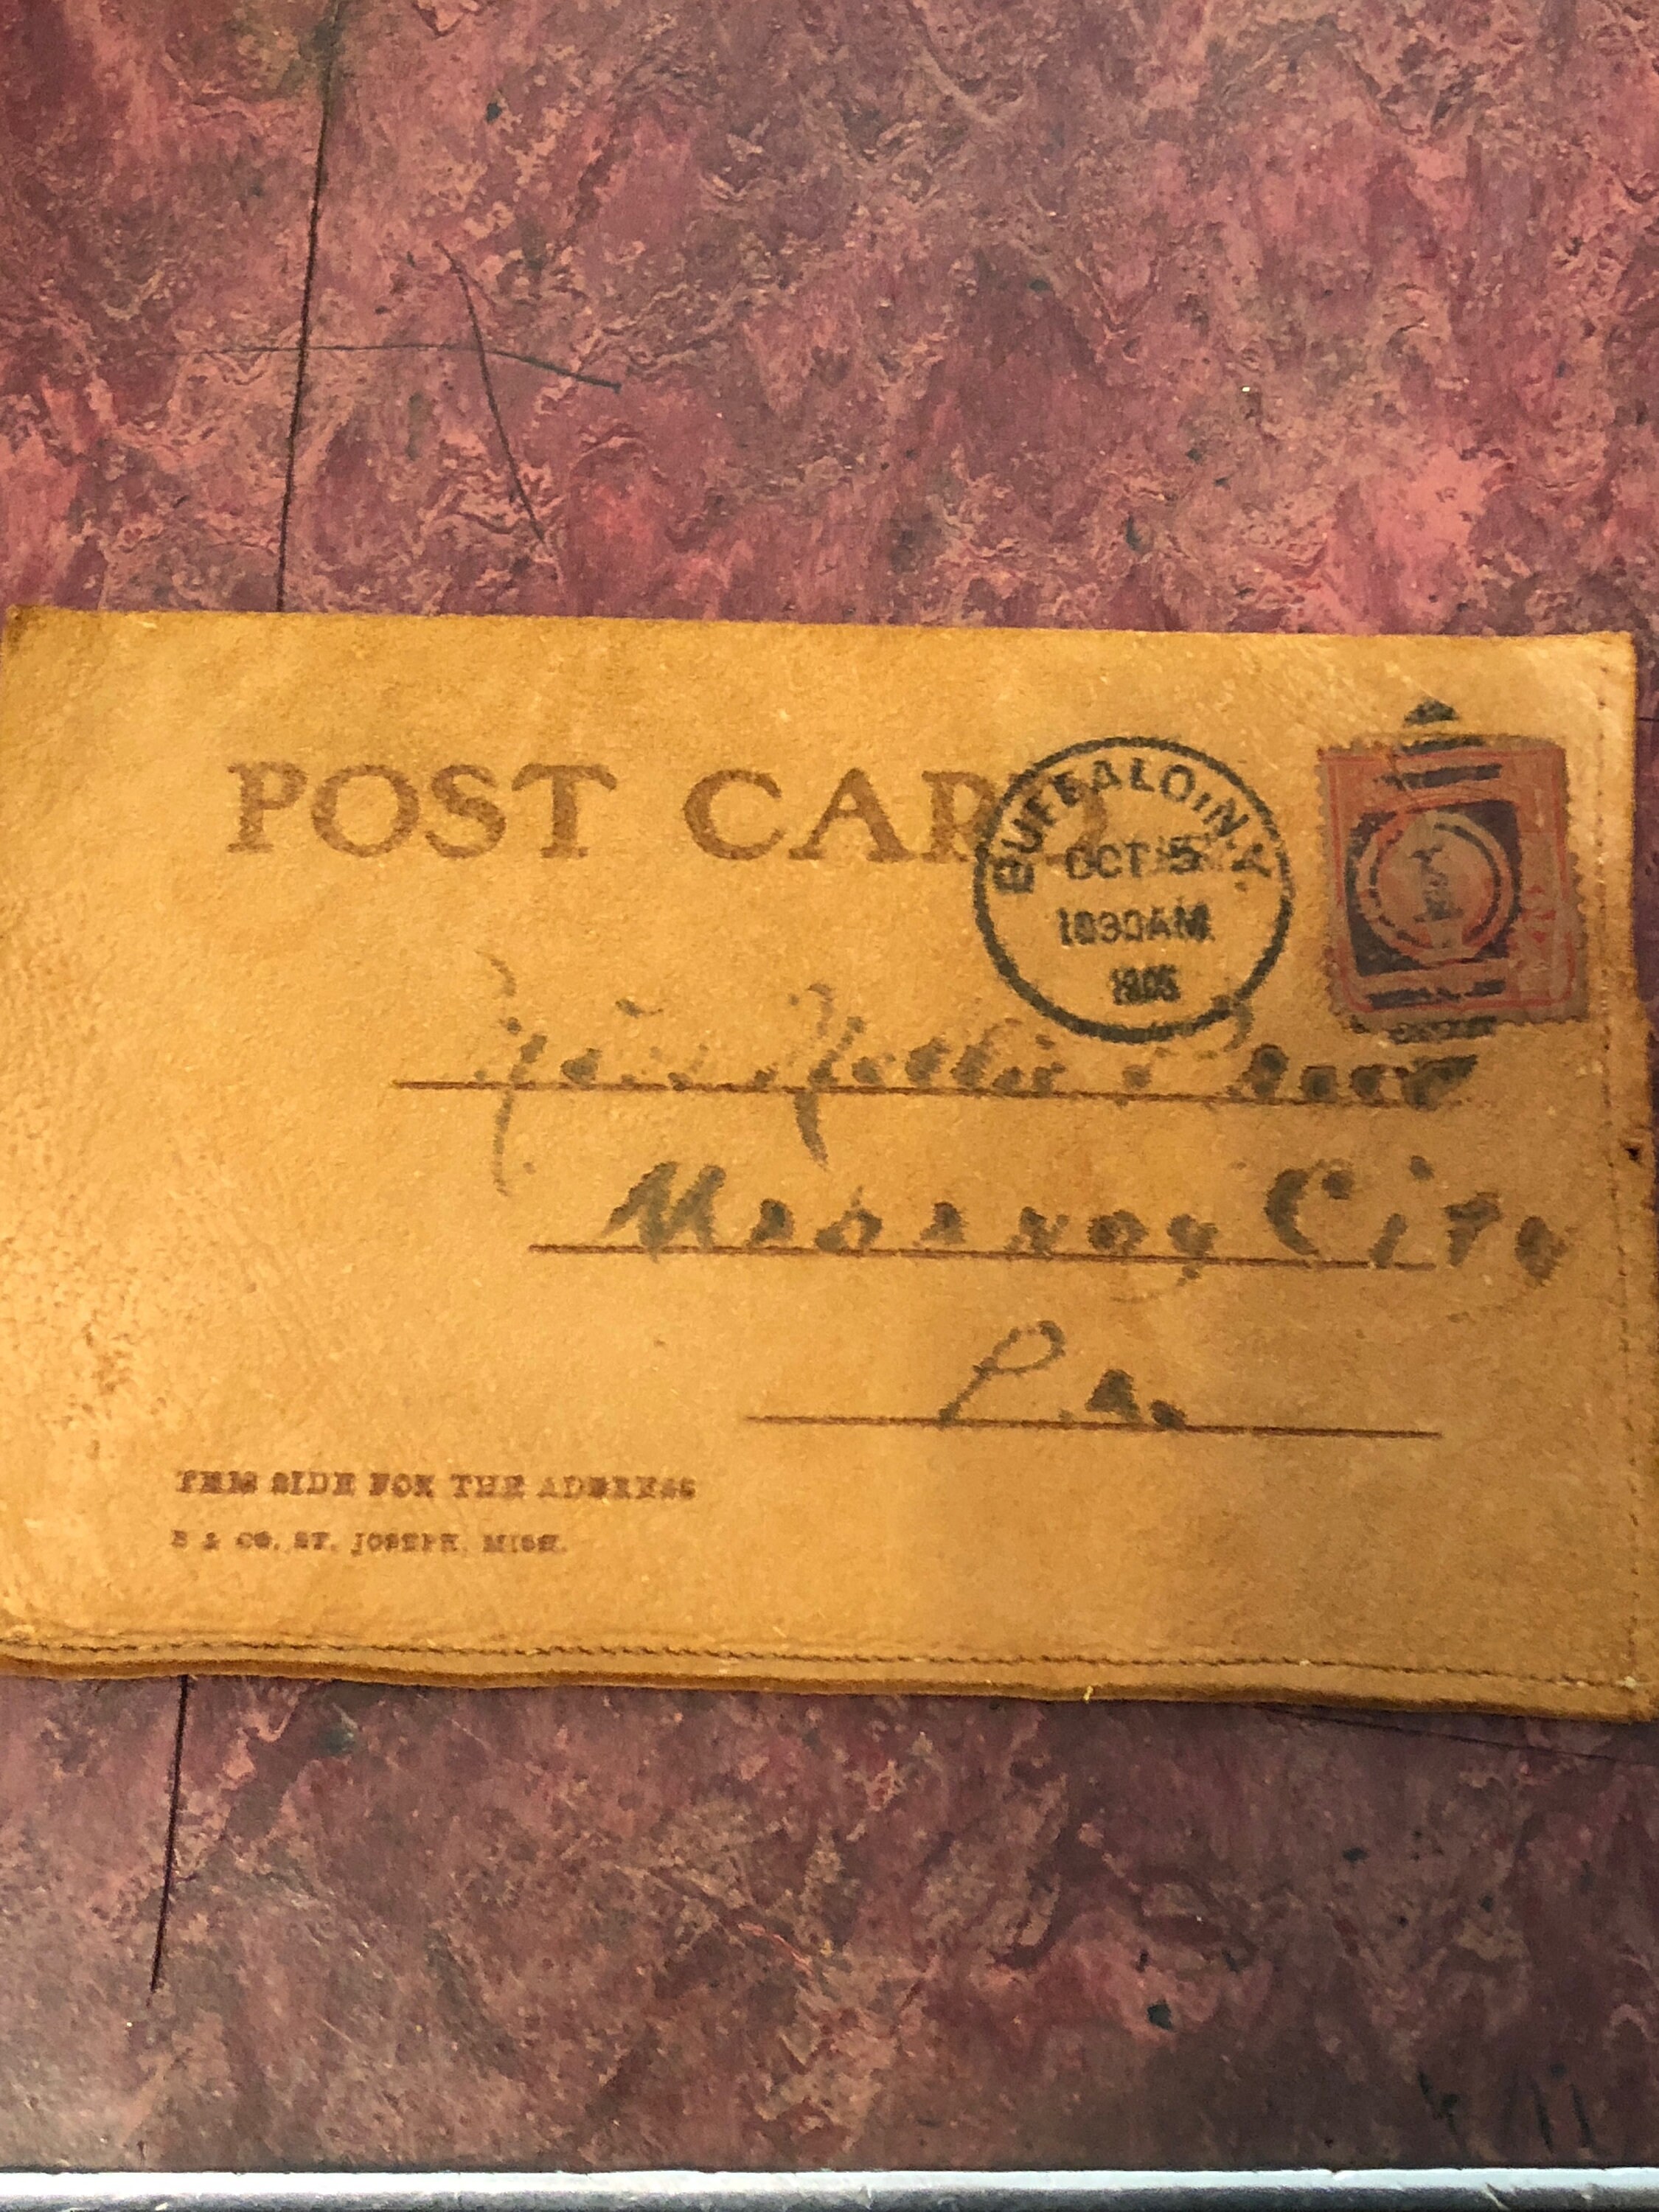 POST CARD
BUFFALO, N.Y.
OCT 5
1030AM
1905
Nellie
City
Pa.
THIS SIDE FOR THE ADDRESS
& CO. ST. JOSEPH, MICH.